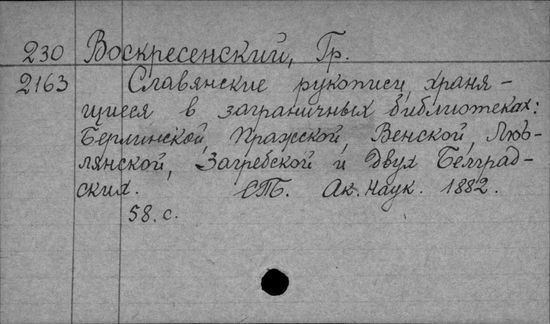 230 Воскресенский, Гр.
2163 Славянские рукописи, храня-
щиеся в заграничных библиотеках:
Берлинской, Пражской, Венской, Люб-
лянской, Загребской и двух Белград-
ских. СПб. Ак. Наук. 1882.
58. с.